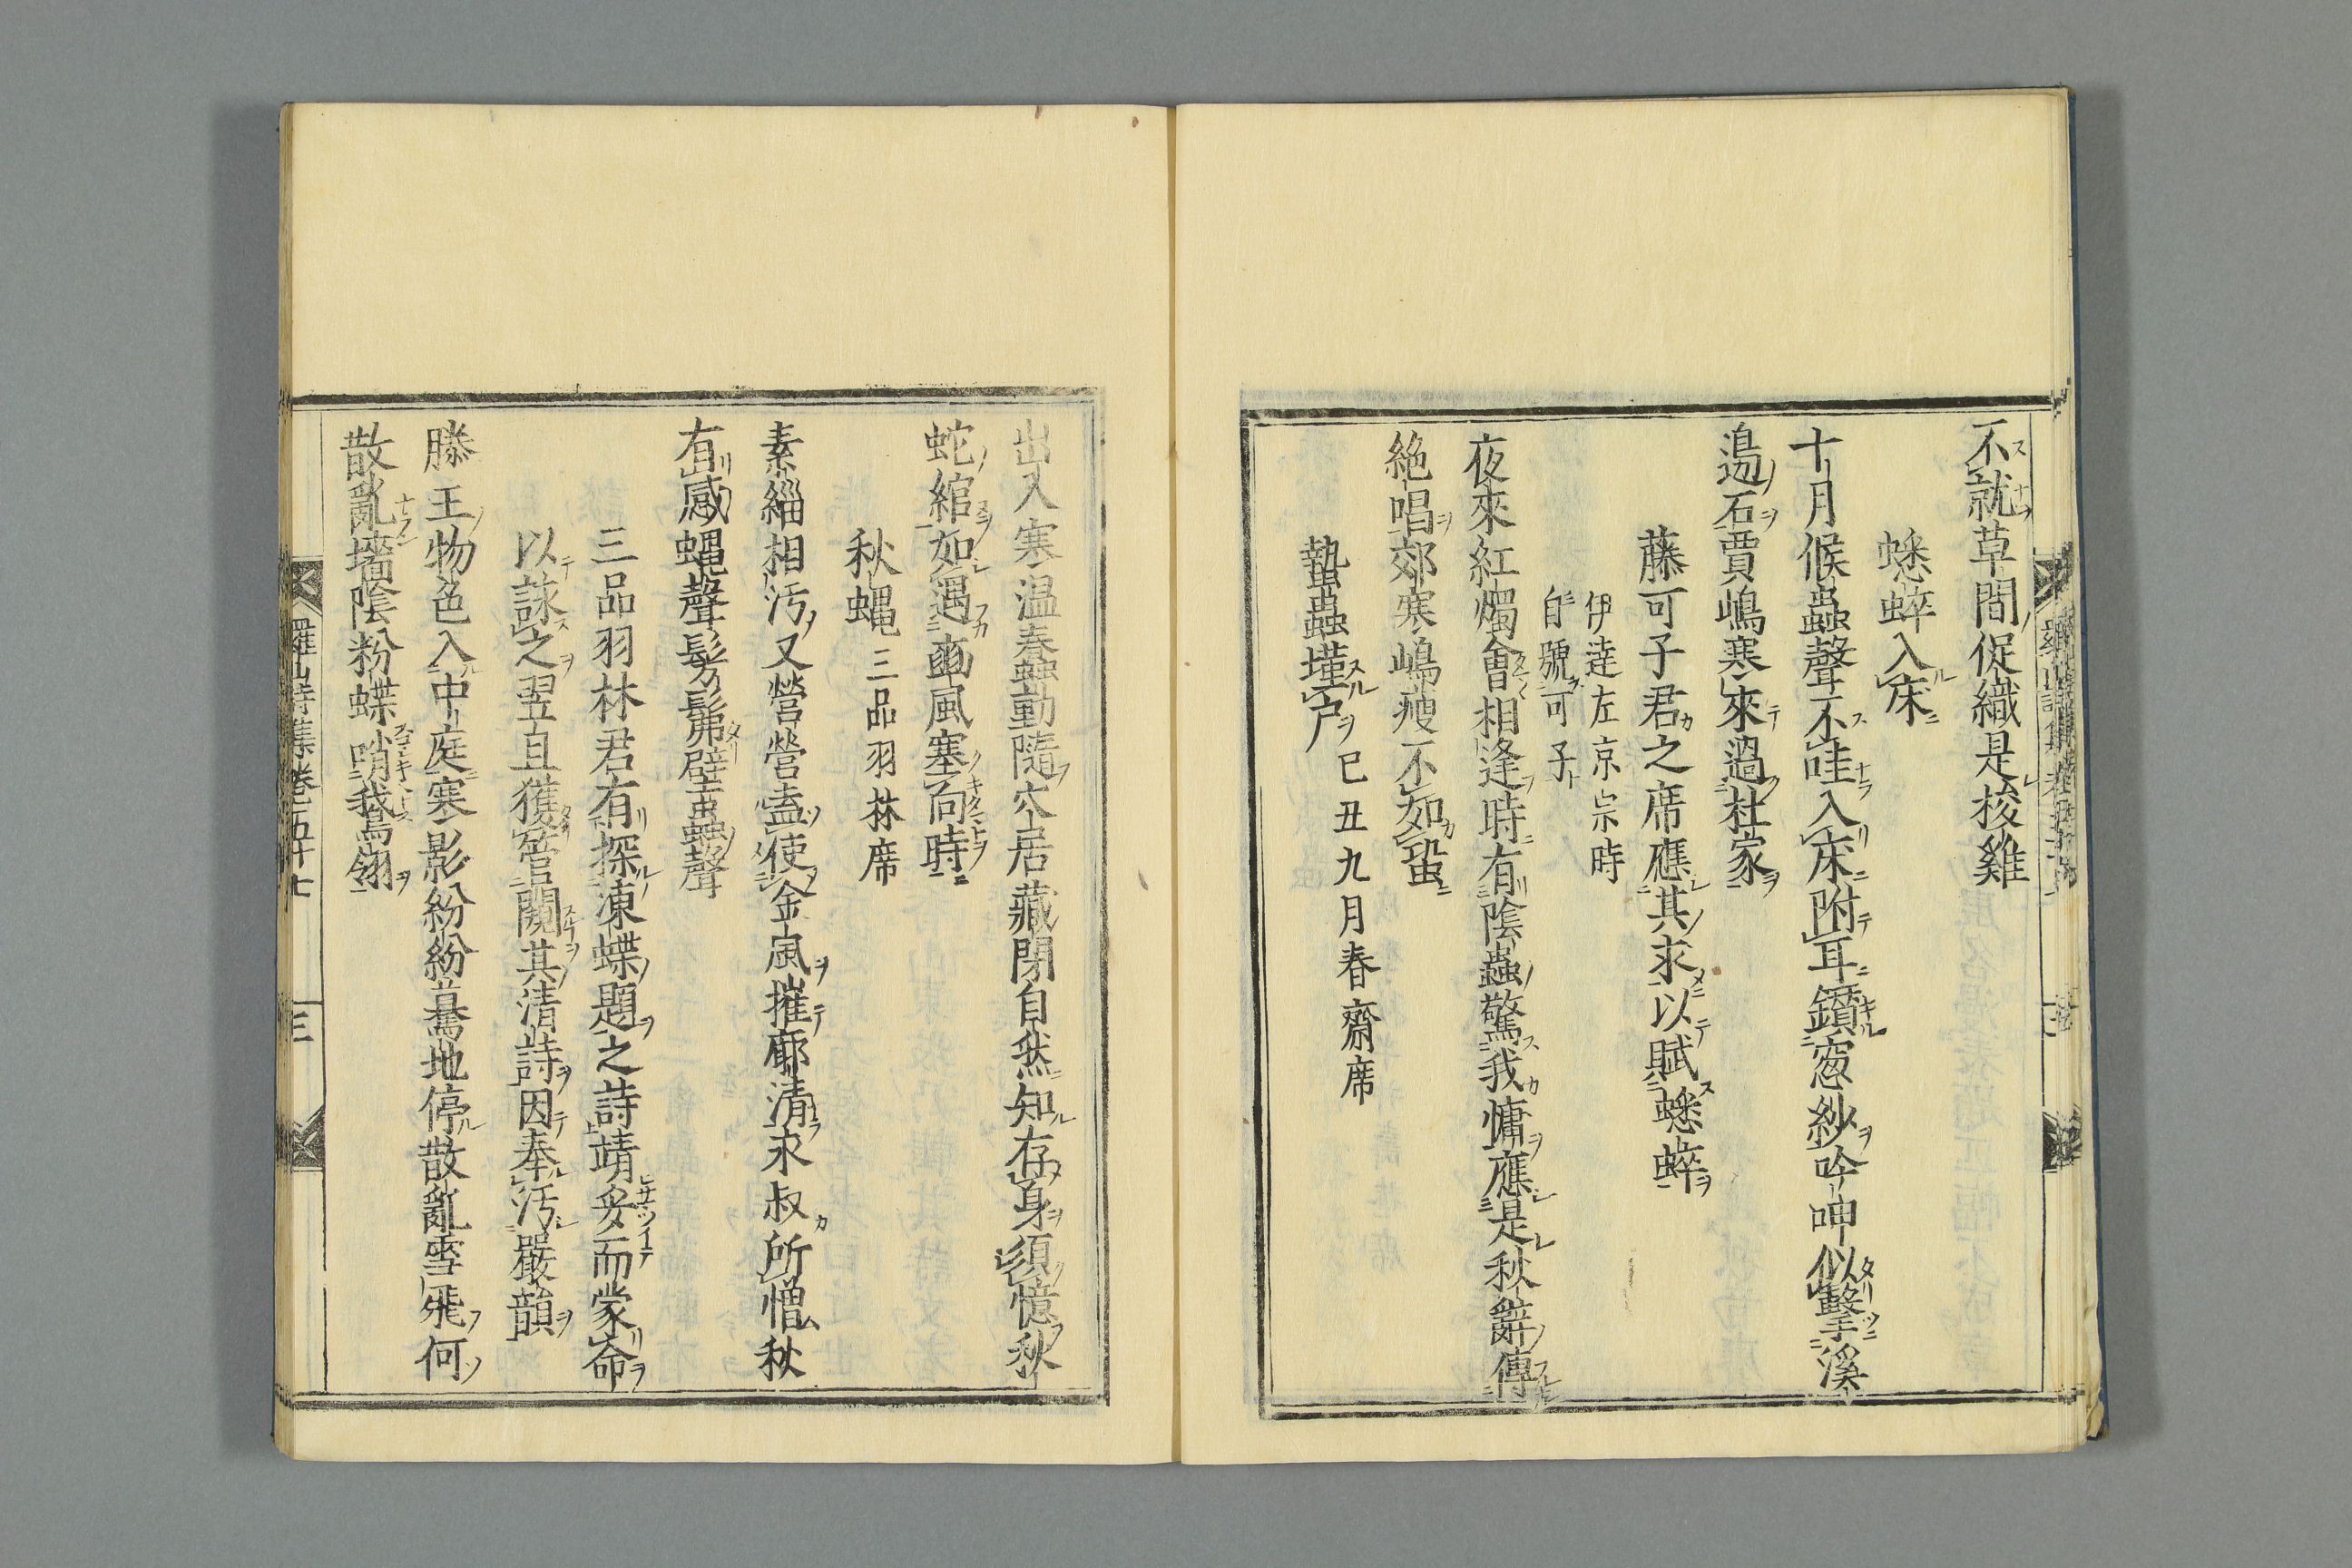 不就草間促織是梭雞
蟋蟀入床
十月候蟲聲不哇入床附耳鑽窓紗吟呻似擊溪
邊石賈嶋寒來過杜家
藤可子君之席應其求以賦蟋蟀
伊達左京宗時
自號可子
夜來紅燭會相逢時有陰蟲驚我慵應是秋辭傳
絶唱郊寒嶋瘦不如蛩
蟄蟲墐户 己丑九月春齋席
出入寒温春蟲動隨穴居藏閉自然知存身須憶秋
蛇綰如遇豳風塞向時
秋蝿 三品羽林席
素緇相汚又營營盍使金風摧廓清永叔所憎秋
有感蝿聲髣髴壁蟲聲
三品羽林君有探凍蝶題之詩靖妥而蒙命
以詠之翌且獲管闚其清詩因奉汚嚴韻
滕王物色入中庭寒影紛紛驀地停散亂雪飛何
散亂墻陰粉蝶哨我鶱翎
羅山詩集卷五十七
三